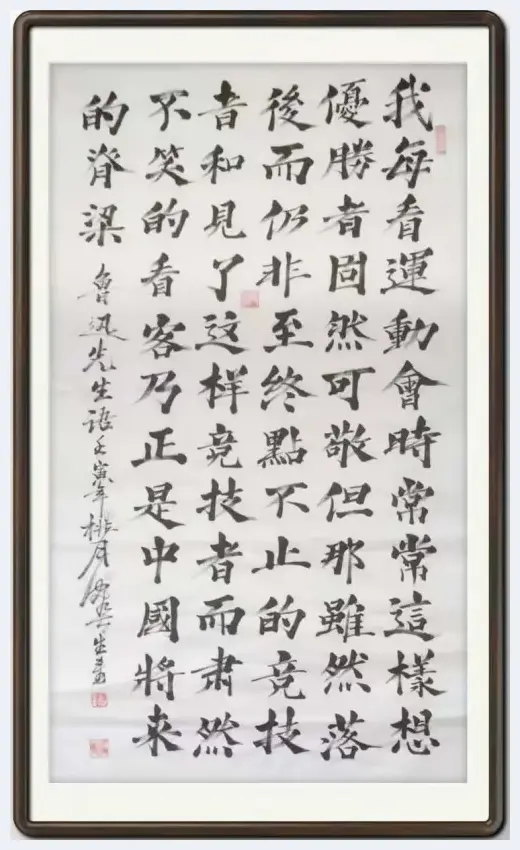 我每看運動會時常常這樣想
優勝者固然可敬但那雖然落
後而仍非至終點不止的竞技
者和見了这样竞技者而肃然
不笑的看客乃正是中國將来
的脊梁
魯迅先生語壬寅年桃月生書